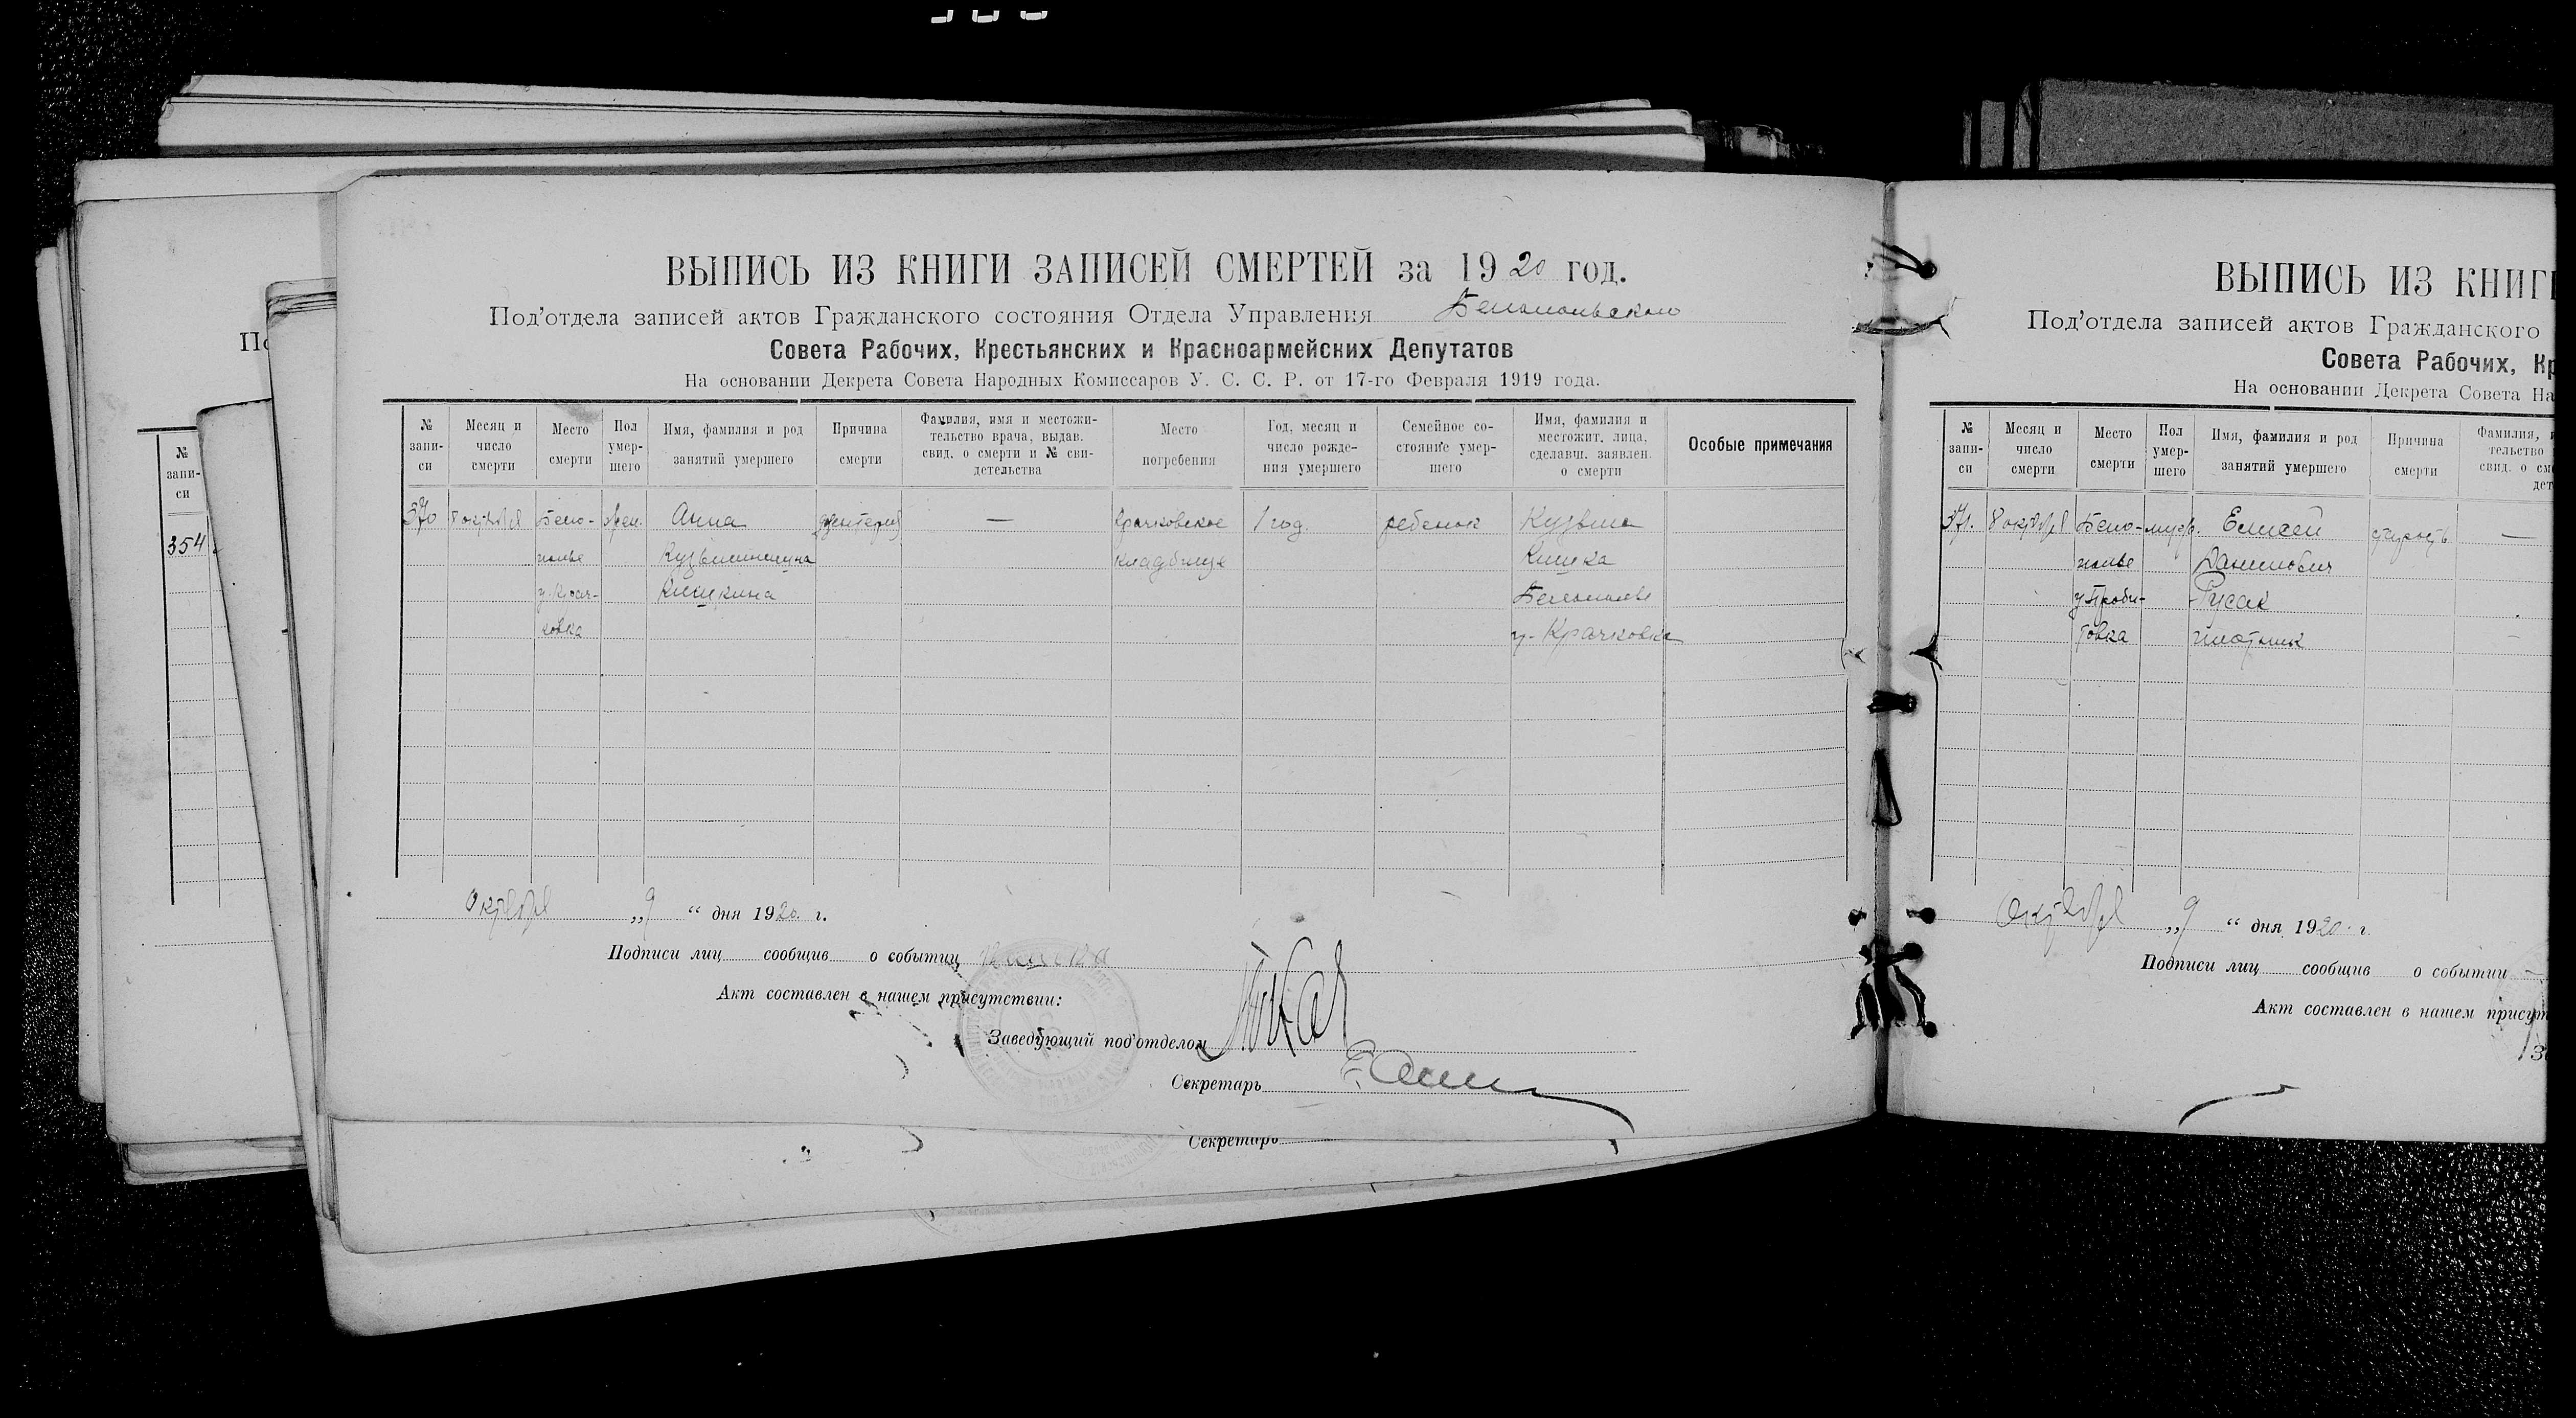 ВЫПИСЬ ИЗ КНИГИ ЗАПИСЕЙ СМЕРТЕЙ за 1920 год.
Под'отдела записей актов Гражданского состояния Отдела Управления Белопольского
Совета Рабочих, Крестьянских и Красноармейских Депутатов
На основании Декрета Совета Народных Комиссаров У. С. С. Р. от 17-го Февраля 1919 года.
№ запи-си
Месяц и число смерти
Место смерти
Пол умер-шего
Имя, фамилия и род занятий умершего
Причина смерти
Фамилия, имя и местожи-тельство врача, выдав. свид. о смерти и № сви-детельства
Место погребения
Год, месяц и число рожде-ния умершего
Семейное со-стояние умер-шего
Имя, фамилия и местожит. лица, сделавш. заявлен. о смерти
Особые примечания
370 8 октября Бело- жен. Анна дизентерия — Крачковское 1 год. ребенок Кузьма
полье Кузьминишна кладбище Кишка
у. Крач- Кишкина Белополье
ковка у. Крачковка
Октября „9“ дня 1920 г.
Подписи лиц сообщив о событии Кишка
Акт составлен в нашем присутствии:
Заведующий под'отделом
Секретарь
Секретарь
По
№ запи-си
354
ВЫПИСЬ ИЗ КНИГИ
Под'отдела записей актов Гражданского
Совета Рабочих, Кр
На основании Декрета Совета На
№ запи-си
Месяц и число смерти
Место смерти
Пол умер-шего
Имя, фамилия и род занятий умершего
Причина смерти
Фамилия, и
тельство
свид. о см
дет
371. 8 октября Бело- муж. Елисей старость —
полье Данилович
Русак
товка плотник
Октября „9“ дня 1920 г.
Подписи лиц сообщив о событии —
Акт составлен в нашем присут
За